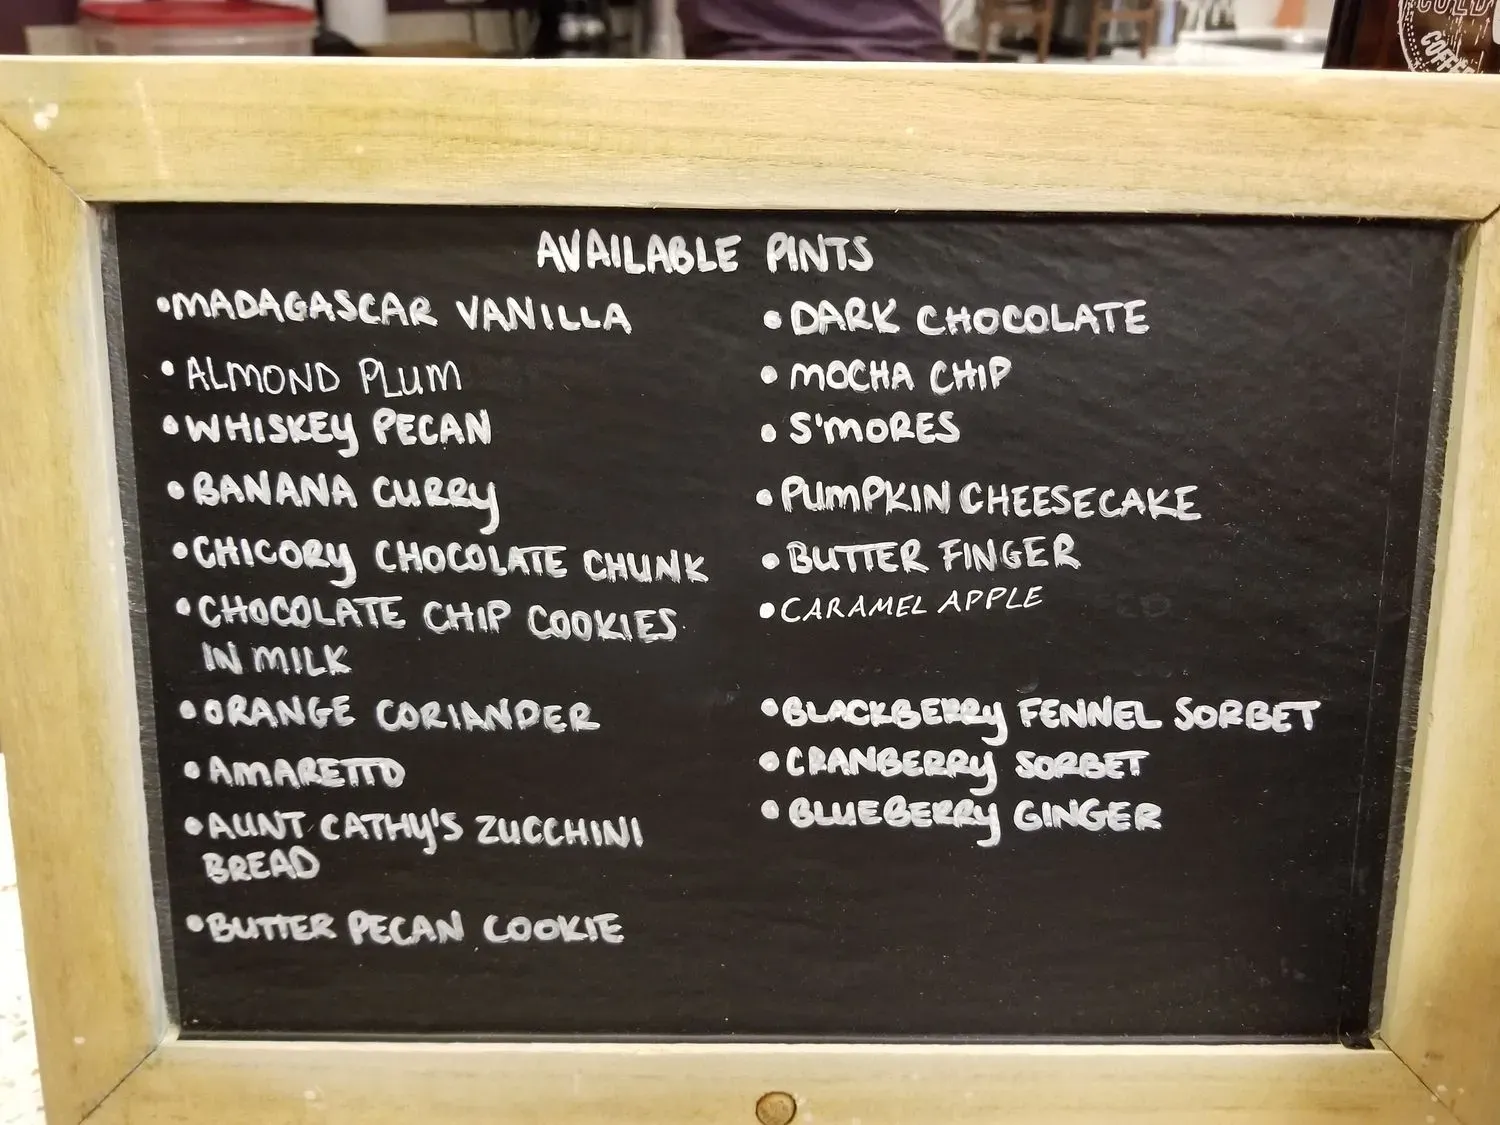 COLD
COFFEE
AVAILABLE PINTS
•MADAGASCAR VANILLA
•ALMOND PLUM
•WHISKEY PECAN
•BANANA CURRY
•CHICORY CHOCOLATE CHUNK
•CHOCOLATE CHIP COOKIES
IN MILK
•ORANGE CORIANDER
•AMARETTO
•AUNT CATHY'S ZUCCHINI
BREAD
•BUTTER PECAN COOKIE
•DARK CHOCOLATE
•MOCHA CHIP
•S'MORES
•PUMPKIN CHEESECAKE
•BUTTER FINGER
•CARAMEL APPLE
•BLACKBERRY FENNEL SORBET
•CRANBERRY SORBET
•BLUEBERRY GINGER